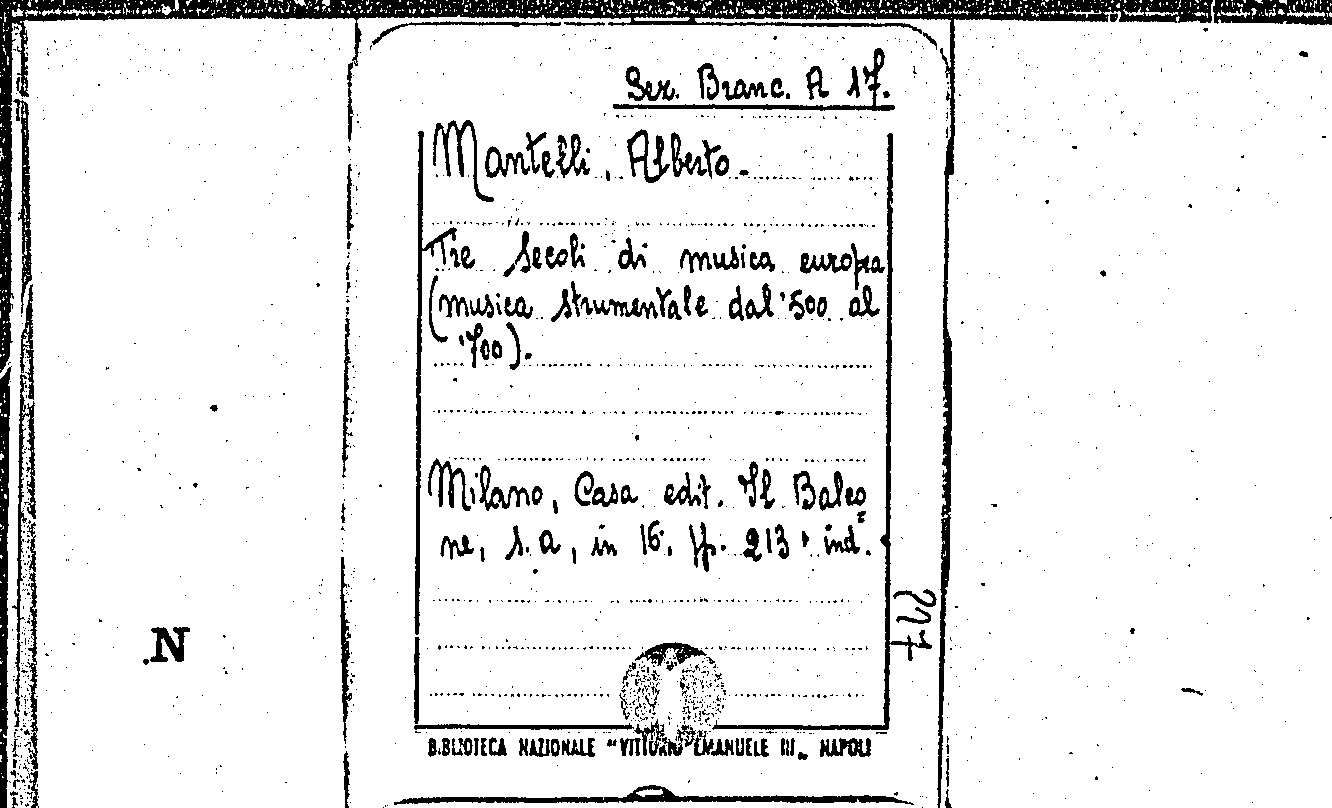 Sez. Branc. A 17.
Mantelli, Alberto.
Tre secoli di musica europea
(musica strumentale dal '500 al
'700).
Milano, Casa edit. Il Balco=
ne, s.a, in 16. pp. 213 ind.
N
BIBLIOTECA NAZIONALE "VITTORIO EMANUELE III" NAPOLI